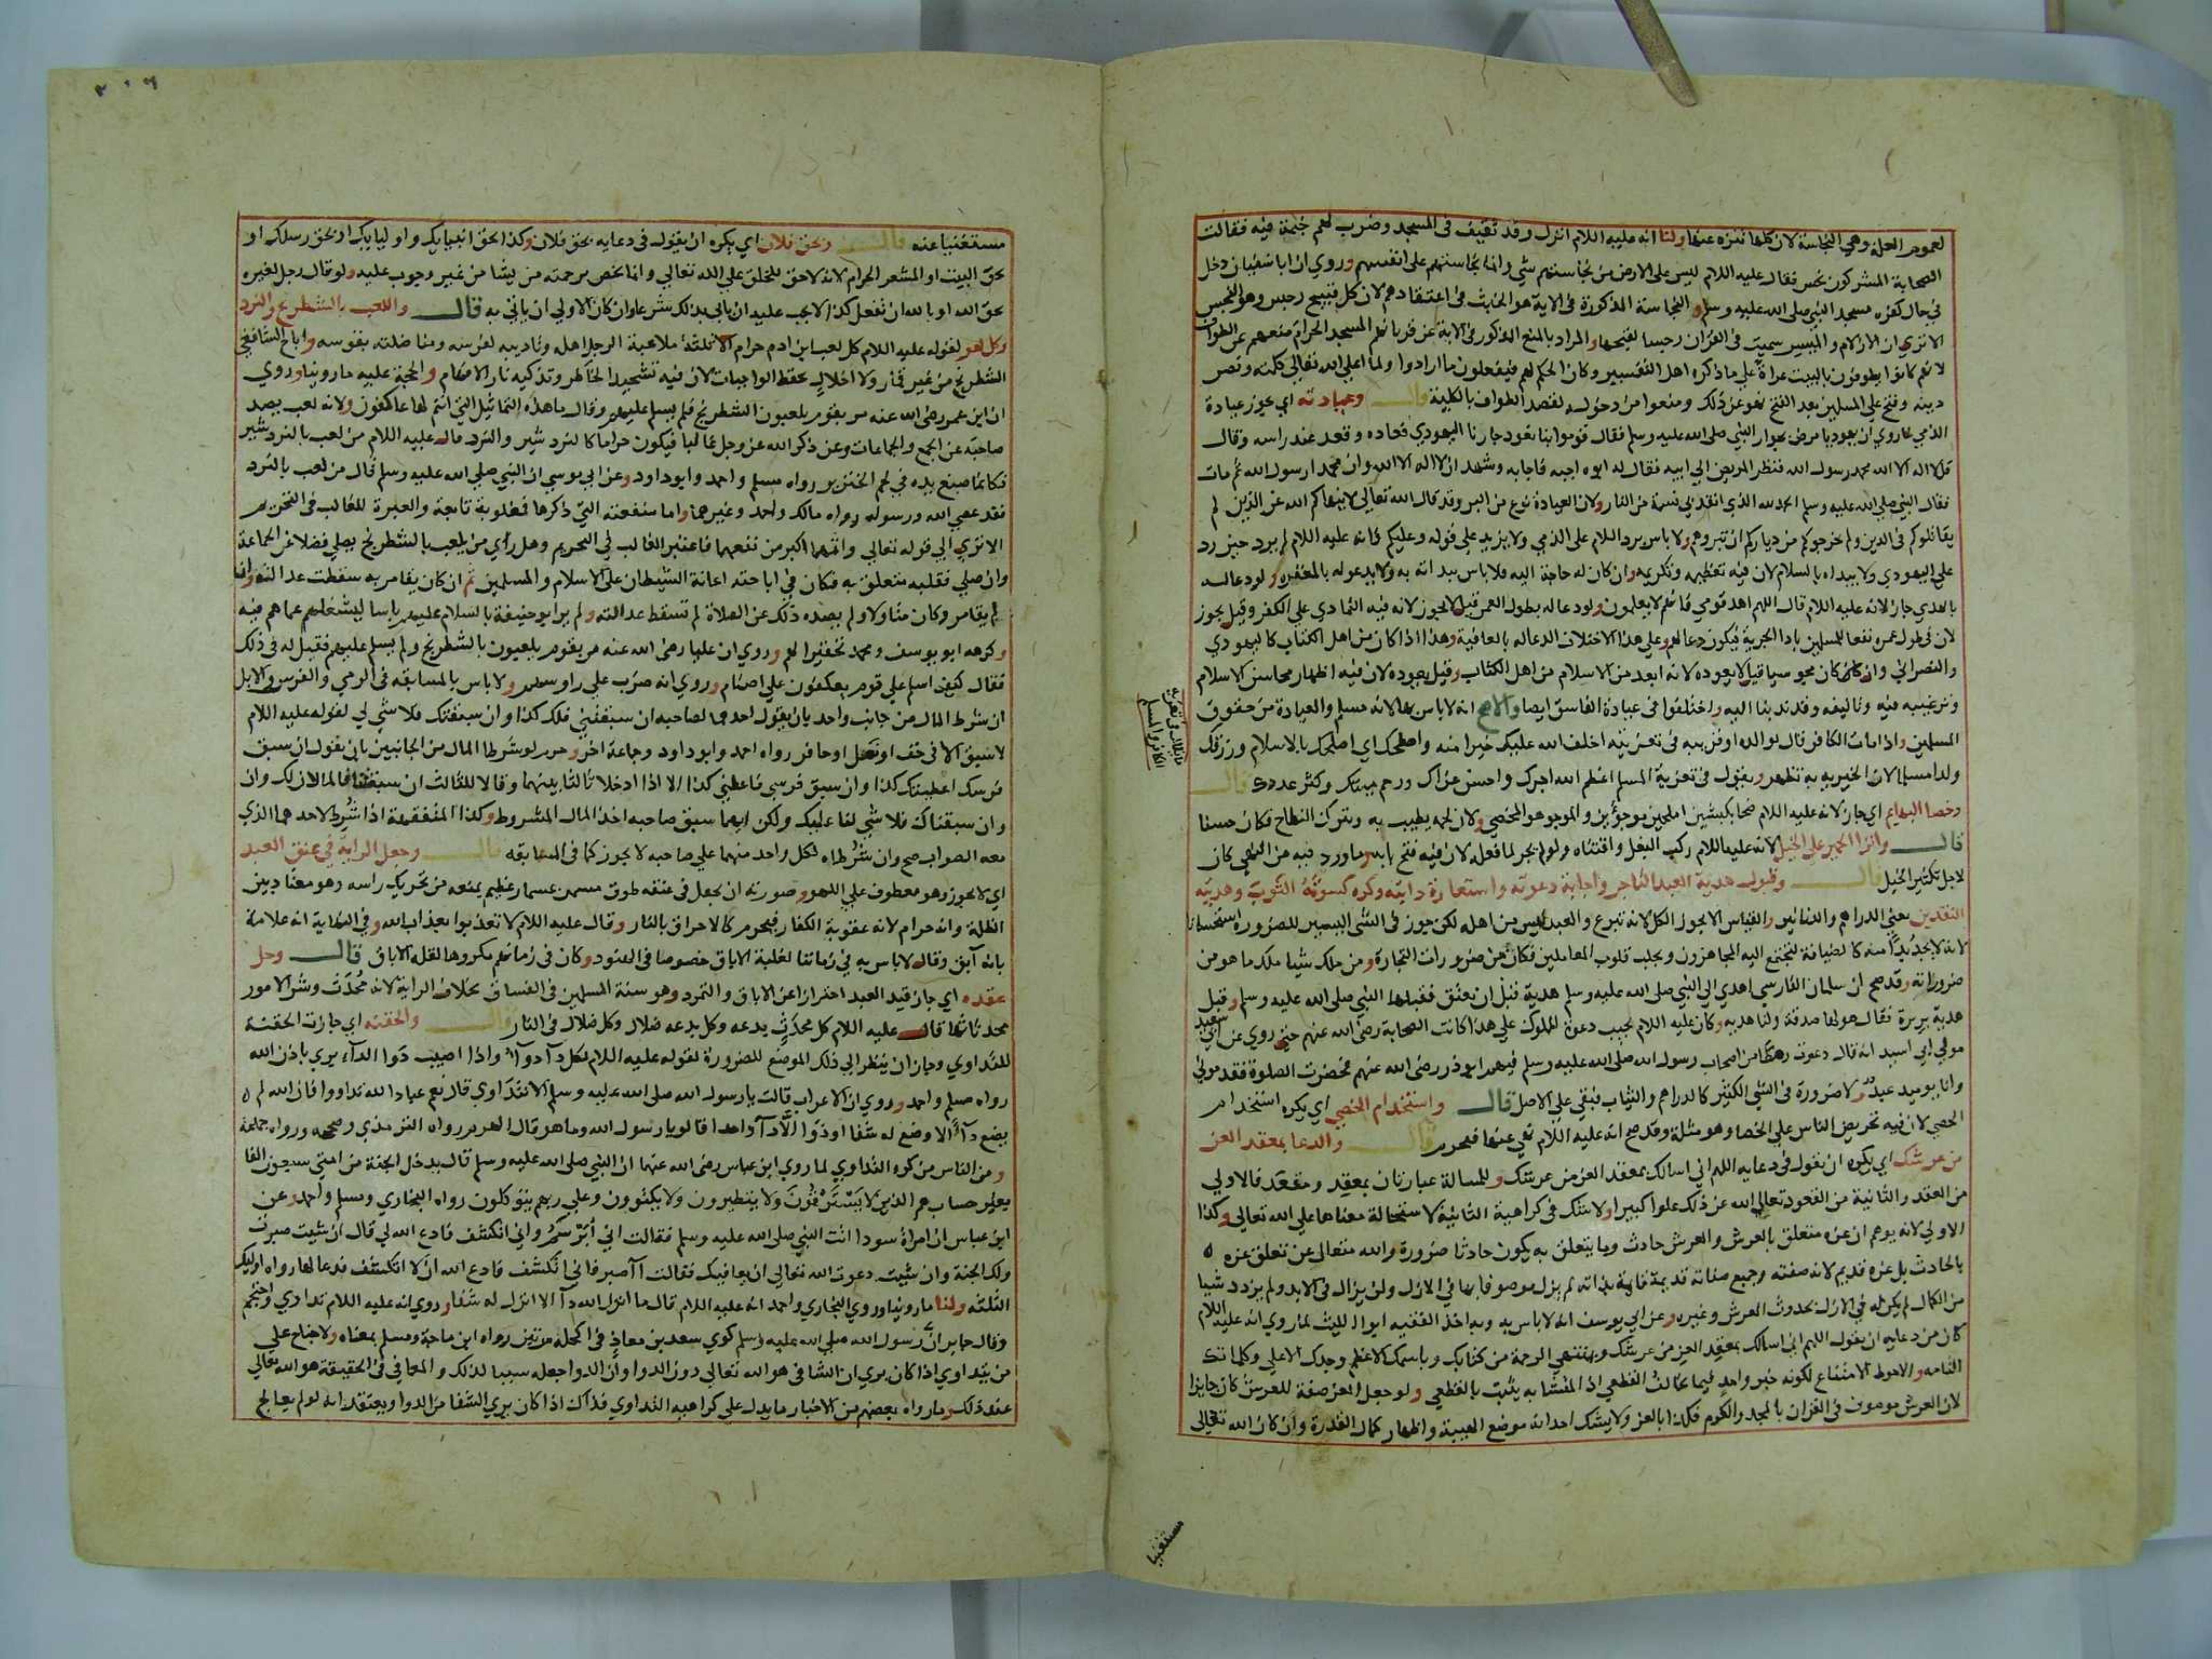 لعموم العلة وهي النجاسة لان كلها تنزه عنها ولنا انه عليه السلام انزل وفد ثقيف فى المسجد وضرب لهم خيمة فيه فقالت
الصحابة المشركون نجس فقال عليه السلام ليس على الارض من نجاستهم شي وانما نجاستهم على انفسهم وروي ان ابا سفيان دخل
في حال كفره مسجد النبي صلى الله عليه وسلم والنجاسة المذكورة فى الاية هو الخبث فى اعتقادهم لان كل قبيح رجس وهو النجس
الا ترى ان الازلام والميسر سميت فى القران رجسا لقبحها والمراد بالمنع المذكور فى الاية عن قربانهم المسجد الحرام منعهم عن الطواف
لانهم كانوا يطوفون بالبيت عراة على ما ذكره اهل التفسير وكان الحكم لهم فيفعلون ما ارادوا ولما اعلى الله تعالى كلمته ونصر
دينه وفتح على المسلمين بعد الفتح نهو عن ذلك ومنعوا من دخوله لقصد الطواف بالكلية قال وعيادته اي يجوز عيادة
الذمي لما روي ان يهوديا مرض بجوار النبي صلى الله عليه وسلم فقال قوموا بنا نعود جارنا اليهودي فعاده وقعد عند راسه وقال
قل لا اله الا الله محمد رسول الله فنظر المريض الى ابيه فقال له ابوه اجبه فاجابه وشهد ان لا اله الا الله وان محمدا رسول الله ثم مات
فقال النبي صلى الله عليه وسلم الحمد لله الذي انقذ بي نسمة من النار ولان العيادة نوع من البر وقد قال الله تعالى لا ينهاكم الله عن الذين لم
يقاتلوكم فى الدين ولم يخرجوكم من دياركم ان تبروهم ولا باس برد السلام على الذمي ولا يزيد على قوله وعليكم فانه عليه السلام لم يزد حين رد
على اليهودي ولا يبداه بالسلام لان فيه تعظيمه وتكريمه وان كان له حاجة اليه فلا باس ببداته به ولا يدعو له بالمغفرة ولو دعا له
بالهدي جاز لانه عليه السلام قال اللهم اهد قومي فانهم لا يعلمون ولو دعا له بطول العمر قيل لا يجوز لانه فيه التمادي على الكفر وقيل يجوز
لان فى طول عمره نفعا للمسلمين بادا الجزية فيكون دعا لهم وعلى هذا الاختلاف الدعا له بالعافية وهذا اذا كان من اهل الكتاب كاليهودي
والنصراني وان كان مجوسيا قيل لا يعوده لانه ابعد من الاسلام من اهل الكتاب وقيل يعوده لان فيه اظهار محاسن الاسلام
وترغيبه فيه وتاليفه وقد ندبنا اليه واختلفوا فى عيادة الفاسق ايضا والاصح انه لا باس بها لانه مسلم والعيادة من حقوق
المسلمين واذا مات الكافر قال لوالده او قريبه فى تعزيته اخلف الله عليك خيرا منه واصلحك اي اصلحك بالاسلام ورزقك
ولدا مسلما لان الخيرية به تظهر ويقول فى تعزية المسلم اعظم الله اجرك واحسن عزاك ورحم ميتك وكثر عددك قال
وخصا البهايم اي جاز لانه عليه السلام ضحا بكبشين املحين موجؤين والموجو هو المخصي ولان لحمه يطيب به ويترك النطاح فكان حسنا
قال وانزا الحمير على الخيل لانه عليه السلام ركب البغل واقتناه ولو لم يجز لما فعله لان فيه فتح بابه وما ورد فيه من النهي كان
لاجل تكثير الخيل قال وقبول هدية العبد التاجر واجابة دعوته واستعارة دابته وكره كسوته الثوب وهديته
النقدين يعنى الدراهم والدنانير والقياس الا يجوز الكل لانه تبرع والعبد ليس من اهله لكن جوز فى الشى اليسير للضرورة استحسانا
لانه لا يجد بدا منه كالضيافة ليجتمع اليه المجاهزون ويجلب قلوب المعاملين فكان من ضرورات التجارة ومن ملك شيا ملك ما هو من
ضروراته وقد صح ان سلمان الفارسي اهدي الى النبي صلى الله عليه وسلم هدية قبل ان يعتق فقبلها النبي صلى الله عليه وسلم وقبل
هدية بريرة فقال هو لها صدقة ولنا هديه وكان عليه السلام يجيب دعوة المملوك على هذا كانت الصحابة رضى الله عنهم حتى روي عن ابي سعيد
مولى ابي اسيد انه قال دعوت رهطا من اصحاب رسول الله صلى الله عليه وسلم فيهم ابو ذر رضى الله عنهم فحضرت الصلوة فقدموني
وانا يوميد عبد ولا ضرورة فى الشي الكثير كالدراهم والثياب فبقي على الاصل قال واستخدام الخصي اي يكره استخدام
الخصي لان فيه تحريض الناس على الخصا وهو مثلة وقد صح انه عليه السلام نهي عنها فيحرم قال والدعا بمعقد العز
من عرشك اي يكره ان يقول فى دعايه اللهم اني اسالك بمعقد العز من عرشك وللمسالة عبارتان بمعقد ومقعد فالاولي
من العقد والثانية من القعود تعالى الله عن ذلك علوا كبيرا ولا شك فى كراهية الثانية لاستحالة معناها على الله تعالى وكذا
الاولي لانه يوهم ان عزه متعلق بالعرش والعرش حادث وما يتعلق به يكون حادثا ضرورة والله متعالى عن تعلق عزه
بالحادث بل عزه قديم لانه صفته وجميع صفاته قديمة قايمة بذاته لم يزل موصوفا بها في الازل ولن يزال فى الابد ولم يزدد شيا
من الكمال لم يكن له فى الازل بحدوث العرش وغيره وعن ابي يوسف انه لا باس به وبه اخذ الفقيه ابو الليث لما روي انه عليه السلام
كان من دعايه ان يقول اللهم اني اسالك بمعقد العز من عرشك وبمنتهي الرحمة من كتابك وباسمك الاعظم وجدك الاعلي وكلماتك
التامه والاحوط الامتناع لكونه خبر واحد فيما يخالف القطعي اذ المتشابه يثبت بالقطعي ولو جعل العز صفة للعرش كان جايزا
لان العرش موصوف فى القران بالمجد والكرم فكذا بالعز ولا يشك احد انه موضع الهيبة واظهار كمال القدرة وان كان الله تعالى
الكافر والمسلم
مستغنيا
٣٠٦
مستغنيا عنه قال وبحق فلان اي يكره ان يقول فى دعايه بحق فلان وكذا بحق انبيايك واوليايك او بحق رسلك او
بحق البيت او المشعر الحرام لانه لا حق للخلق على الله تعالى وانما يخص برحمته من يشا من غير وجوب عليه ولو قال رجل لغيره
بحق الله او بالله ان تفعل كذا لا يجب عليه ان ياتي بذلك شرعا وان كان الاولي ان ياتي به قال واللعب بالشطرنج والنرد
وكل لهو لقوله عليه السلام كل لعب ابن ادم حرام الا ثلثة ملاعبة الرجل اهله وتاديبه لفرسه ومناضلته بقوسه واباح الشافعي
الشطرنج من غير قمار ولا اخلال بحفظ الواجبات لان فيه تشحيذ الخاطر وتذكيه نار الافهام والحجة عليه ما روينا وروي
ان ابن عمر رضى الله عنه مر بقوم يلعبون الشطرنج فلم يسلم عليهم وقال ما هذه التماثيل التي انتم لها عاكفون ولانه لعب يصد
صاحبه عن الجمع والجماعات وعن ذكر الله عز وجل غالبا فيكون حراما كالنردشير والنرد قال عليه السلام من لعب بالنردشير
فكانما صبغ يده في لحم الخنزير رواه مسلم واحمد وابو داود وعن ابي موسي ان النبي صلى الله عليه وسلم قال من لعب بالنرد
فقد عصي الله ورسوله رواه مالك واحمد وغيرهما واما منفعته التي ذكرها فمغلوبة تابعة والعبرة للغالب فى التحريم
الا تري الي قوله تعالى واثمهما اكبر من نفعهما فاعتبر الغالب في التحريم وهل راي من يلعب بالشطرنج يصلي فضلا عن الجماعة
وان صلي فقلبه متعلق به فكان فى اباحته اعانة الشيطان على الاسلام والمسلمين ثم ان كان يقامر به سقطت عدالته وان
لم يقامر وكان متاولا ولم يصده ذلك عن الصلاة لم تسقط عدالته ولم ير ابو حنيفة بالسلام عليهم باسا ليشغلهم عما هم فيه
وكرهه ابو يوسف ومحمد تحقيرا لهم وروي ان عليا رضى الله عنه مر بقوم يلعبون بالشطرنج ولم يسلم عليهم فقيل له فى ذلك
فقال كيف اسلم على قوم يعكفون على اصنام وروي انه ضرب على راوسهم ولا باس بالمسابقه فى الرمي والفرس والابل
ان شرط المال من جانب واحد بان يقول احدهما لصاحبه ان سبقتني فلك كذا وان سبقتك فلا شي لي لقوله عليه السلام
لا سبق الا في خف او نصل او حافر رواه احمد وابو داود وجماعة اخر وحرم لو شرطا المال من الجانبين بان يقول ان سبق
فرسك اعطيتك كذا وان سبق فرسي فاعطني كذا الا اذا ادخلا ثالثا بينهما وقالا للثالث ان سبقتنا فالمالان لك وان
وان سبقناك فلا شي لنا عليك ولكن ايهما سبق صاحبه اخذ المال المشروط وكذا المتفقهة اذا شرط لاحدهما الذي
معه الصواب صح وان شرطاه لكل واحد منهما على صاحبه لا يجوز كما فى المسابقه قال وجعل الراية فى عنق العبد
اي لا يجوز وهو معطوف على اللهو وصورته ان يجعل فى عنقه طوق مسمر بمسمار عظيم يمنعه من تحريك راسه وهو معتاد بين
الظلمة وانه حرام لانه عقوبة الكفار فيحرم كالاحراق بالنار وقال عليه السلام لا تعذبوا بعذاب الله وفى النهاية انه علامة
بانه آبق وقال لا باس به في زماننا لغلبة الاباق خصوصا فى الهنود وكان فى زمانهم مكروها لقلة الاباق قال وحل
عقده اي جاز قيد العبد احترازا عن الاباق والتمرد وهو سنة المسلمين فى الفساق بخلاف الراية لانه محدث وشر الامور
محدثاتها قال عليه السلام كل محدث بدعه وكل بدعه ضلال وكل ضلال فى النار قال والحقنه اي جازت الحقنة
للتداوي وجاز ان ينظر الى ذلك الموضع للضرورة لقوله عليه السلام لكل دآ دوآ واذا اصيب دوا الدآء بري باذن الله
رواه مسلم واحمد وروي ان الاعراب قالت يا رسول الله صلى الله عليه وسلم الا نتداوي قال نعم عباد الله تداووا فان الله لم
يضع دآ الا وضع له شفا او دوا الا دآ واحدا قالوا يا رسول الله وما هو قال الهرم رواه الترمذي وصححه ورواه جماعة
ومن الناس من كره التداوي لما روي ابن عباس رضى الله عنهما ان النبي صلى الله عليه وسلم قال يدخل الجنة من امتي سبعون الفا
بغير حساب هم الذين لا يسترقون ولا يتطيرون ولا يكتوون وعلى ربهم يتوكلون رواه البخاري ومسلم واحمد وعن
ابن عباس ان امراة سودا اتت النبي صلى الله عليه وسلم فقالت اني اصرع واني اتكشف فادع الله لي قال ان شيت صبرت
ولك الجنة وان شيت دعوت الله تعالى ان يعافيك فقالت آصبر فاني اتكشف فادع الله ان لا اتكشف فدعا لها رواه اوليك
الثلثه ولنا ما روينا وروي البخاري واحمد انه عليه السلام قال ما انزل الله دآ الا انزل له شفا وروي انه عليه السلام تداوي واحتجم
وقال جابر ان رسول الله صلى الله عليه وسلم كوي سعد بن معاذ فى اكحله مرتين رواه ابن ماجة ومسلم بمعناه ولا جناح على
من يتداوي اذا كان يري ان الشافى هو الله تعالى دون الدوا وان الدوا جعله سببا لذلك والمعافي فى الحقيقة هو الله تعالى
عند ذلك وما رواه بعضهم من الاخبار ما يدل على كراهيه التداوي فذاك اذا كان يري الشفا من الدوا ويعتقد انه لو لم يعالج